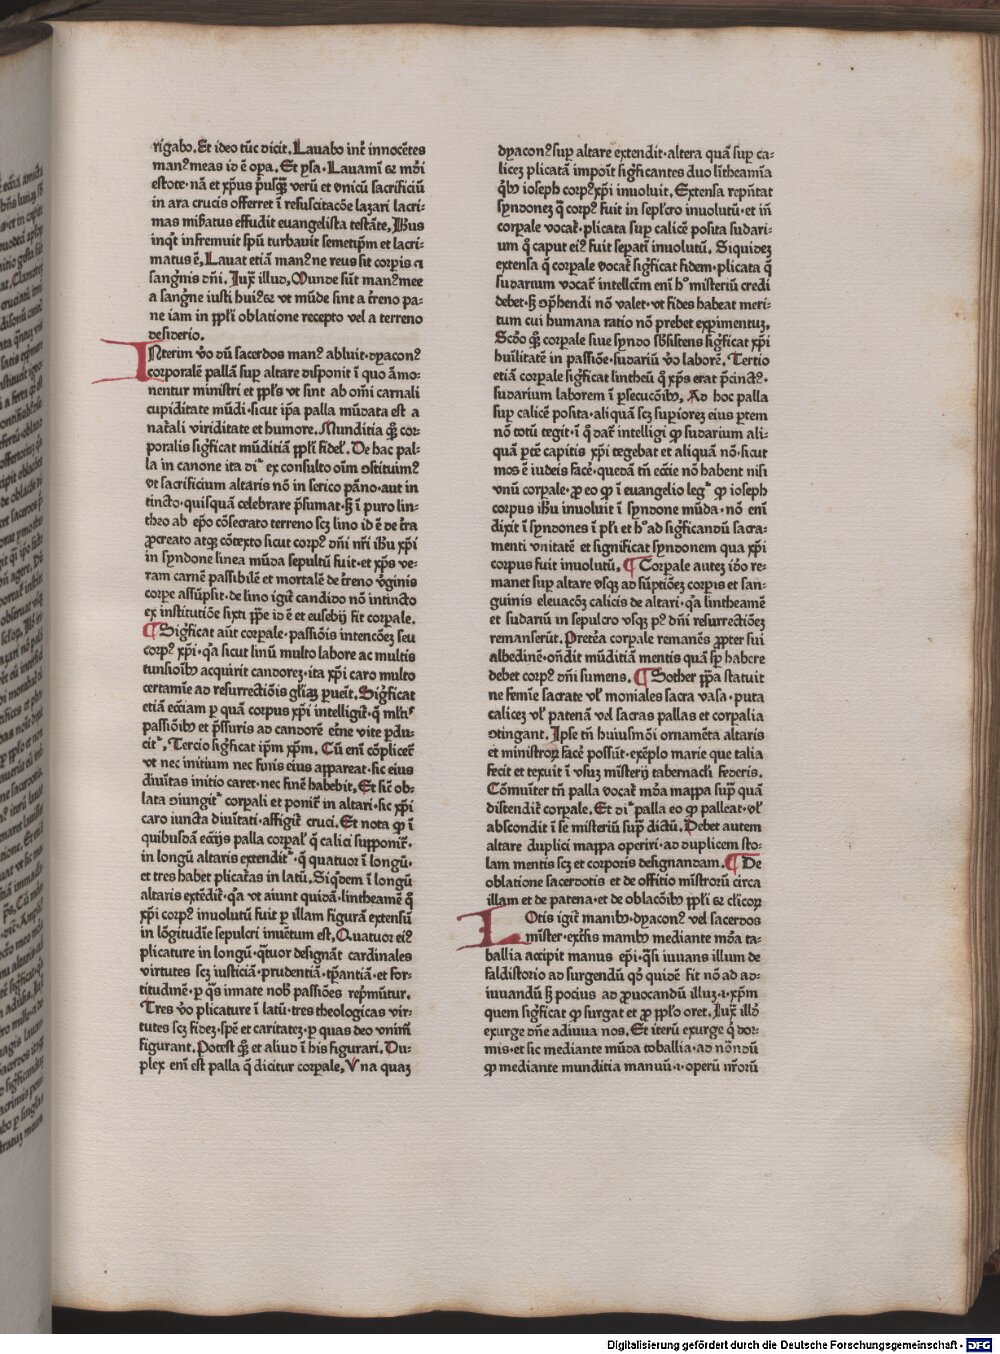 rigabo. Et ideo tūc dicit. Lavabo int̄ innocētes
manꝰ meas id ē oꝑa. Et ysa. Lavamī ⁊ mūdi
estote. nā et xp̄us pͥusq̄ꝫ verū et vnicū sacrificiū
in ara crucis offerret ī resuscitacōe lazari lacri-
mas mibatus effudit euangelista testāte. Jhus
inqt infremuit spū turbauit semetip̄m et lacri-
matus ē. Lauat etiā manꝰ ne reus sit corpis ⁊
sangͥnis dn̄i. Jux̄ illud. Munde sūt manꝰ mee
a sangͥne iusti huiꝰ ⁊ vt mūde sint a t̄reno pa-
ne iam in pp̄li oblatione recepto vel a terreno
desiderio.
INterim v̄o dū sacerdos manꝰ abluit. dyaconꝰ
corporalē pallā suꝑ altare disponit ī quo āmo-
nentur ministri et pp̄ls vt sint ab om̄i carnali
cupiditate mūdi. sicut ip̄a palla mūdata est a
nat̄ali viriditate et humore. Munditia q̄ꝫ cor-
poralis sigͥficat mūditiā pp̄li fidel̄. De hac pal-
la in canone ita dīͬ ex consulto oīm ꝯstituimꝰ
vt sacrificium altaris nō in serico pāno. aut in
tincto. quisquā celebrare p̄sumat. ꝫ ī puro lin-
theo ab ep̄o cōsecrato terreno scꝫ lino id ē de t̄ra
ꝓcreato atqꝫ cōtexto sicut corpꝰ dn̄i nr̄i ihu xp̄i
in syndone linea mūda sepultū fuit. et xp̄s ve-
ram carnē passibilē et mortalē de t̄reno vͥginis
corpe assūpsit. de lino igit̄ candido nō intincto
ex institutiōe sixti pp̄e id ē et eusebij fit corpale.
¶ Sigͥficat aūt corpale. passiōis intencōeꝫ seu
corpꝰ xp̄i. qͥa sicut linū multo labore ac multis
tunsioībꝰ acquirit candoreꝫ. ita xp̄i caro multo
certamīe ad resurrectiōis glīaꝫ ꝑueīt. Sigͥficat
etiā ecciam ꝑ quā corpus xp̄i intelligit̄. q̄ mltͥˢ
passiōibꝰ et p̄ssuris ad candorē et̄ne vite ꝑdu-
citͬ. Tercio sigͥficat ip̄m xp̄m. Cū enī cōplicet̄
vt nec initium nec finis eius appareat. sic eius
diuītas initio caret. nec finē habebit. Et sic̄ ob-
lata diungitͬ corpali et ponit̄ in altari. sic xp̄i
caro iuncta diuītati. affigit̄ cruci. Et nota qꝙ ī
quibusdā ecciīs palla corpal̄ q̄ calici supponit̄.
in longū altaris extenditͬ. q̄ quatuor ī longū.
et tres habet plicat̄as in latū. Siqͥdem ī longū
altaris extēdit̄. qͥa vt aiunt quidā. lintheamē q̄
xp̄i corpꝰ inuolutū fuit ꝑ illam figurā extensū
in lōgitudīe sepulcri inuētum est. Quatuor eiꝰ
plicature in longū. qͣtuor designāt cardinales
virtutes scꝫ iusticiā. prudentiā. tꝑantiā. et for-
titudinē. ꝑ qͣs innate nobꝰ passiōes rep̄mūtur.
Tres v̄o plicature ī latū. tres theologicas vir-
tutes scꝫ fideꝫ. spē et caritateꝫ. ꝑ quas deo vnimͥ
figurant. Potest q̄ꝫ et aliud ī his figurari. Du-
plex enī est palla q̄ dicitur corpale. Vna quaꝫ
dyaconꝰ suꝑ altare extendit. altera quā suꝑ ca-
liceꝫ plicatā impoīt sigͥficantes duo līthēamīa
qͥbꝰ ioseph corpꝰ xp̄i inuoluit. Extensa rep̄ntat
syndoneꝫ q̄ corpꝰ fuit in sepl̄cro inuolutū. et in
corpale vocat̄. plicata suꝑ calicē posita sudari-
um q̄ caput eiꝰ fuit seꝑatī inuolutū. Siquideꝫ
extensa q̄ corpale vocat̄ sigͥficat fidem. plicata q̄
sudarium vocat̄ intellcm̄ enī hͦ misteriū credi
debet. ꝫ ꝯp̄hendi nō valet. vt fides habeat meri-
tum cui humana ratio nō prebet exꝑimentuꝫ.
Scd̄o q̄ꝫ corpale siue syndo sb̄sistens sigͥficat xp̄i
huīlitatē in passiōe. sudariū v̄o laborē. Tertio
etiā corpale sigͥficat lintheū q̄ xp̄s erat p̄cinctꝰ.
sudarium laborem ī ꝑsecucōibꝰ. Ad hoc palla
suꝑ calicē posita. aliquā scꝫ supioreꝫ eius ꝑtem
nō totū tegit. ī q̄ dat̄ intelligi qꝙ sudarium ali-
quā ꝑtē capitis xp̄i tegebat et aliquā nō. sicut
mos ē iudeis facē. quedā tn̄ ecc̄ie nō habent nisi
vnū corpale. ꝓ eo qꝙ ī euangelio legͬ qꝙ ioseph
corpus ihu inuoluit ī syndone mūda. nō enī
dixit ī syndones ī pl̄i et hͦ ad sigͥficandū sacra-
menti vnitatē et significat syndonem qua xp̄i
corpus fuit inuolutū. ¶ Corpale auteꝫ id̄o re-
manet suꝑ altare vsqꝫ ad sūptiōeꝫ corpis et san-
guinis eleuacōꝫ calicis de altari. qͥa lintheamē
et sudariū in sepulcro vsqꝫ pꝰ dn̄i resurrectiōeꝫ
remanserūt. Pretēa corpale remanēs ꝓpter sui
albedinē. on̄dit mūditiā mentis quā sꝑ habere
debet corpꝰ dn̄i sumens. ¶ Sother pp̄a statuit
ne femīe sacrate vl̄ moniales sacra vasa. puta
caliceꝫ vl̄ patenā vel sacras pallas et corpalia
ꝯtingant. Ipse tn̄ huiusmōi ornamēta altaris
et ministroꝝ facē possūt. exēplo marie que talia
fecit et texuit ī vsuꝫ mīsterij tabernacl̄i federis.
Cōmuīter tn̄ palla vocat̄ mōa mappa suꝑ quā
distendit̄ corpale. Et dīͬ palla eo qꝙ palleat. vl̄
abscondit ī se misteriū sup̄ dictū. Debet autem
altare duplici mappa oꝑiri. ad duplicem sto-
lam mentis scꝫ et corporis designandam. ¶ De
oblatione sacerdotis et de offitio mīstrorū circa
illam et de patena. et de oblacōibꝰ pp̄li ⁊ clicoꝝ
LOtis igit̄ manibꝰ. dyaconꝰ vel sacerdos
mīster. ext̄sis manibꝰ mediante mōa ta-
ballia accipit manus ep̄i. qͣsi iuuans illum de
faldistorio ad surgendū qͦ quidē fit nō ad ad-
iuuandū ꝫ pocius ad ꝓuocandū illuꝫ .i. xp̄m
quem sigͥficat qꝙ surgat et ꝓ pp̄lo oret. Jux̄ illd̄
exurge dn̄e adiuua nos. Et iterū exurge q̄ dor-
mis. et sic mediante mūda toballia. ad nōndū
qꝙ mediante munditia manuū .i. operū nr̄orū
Digitalisierung gefördert durch die Deutsche Forschungsgemeinschaft - DFG